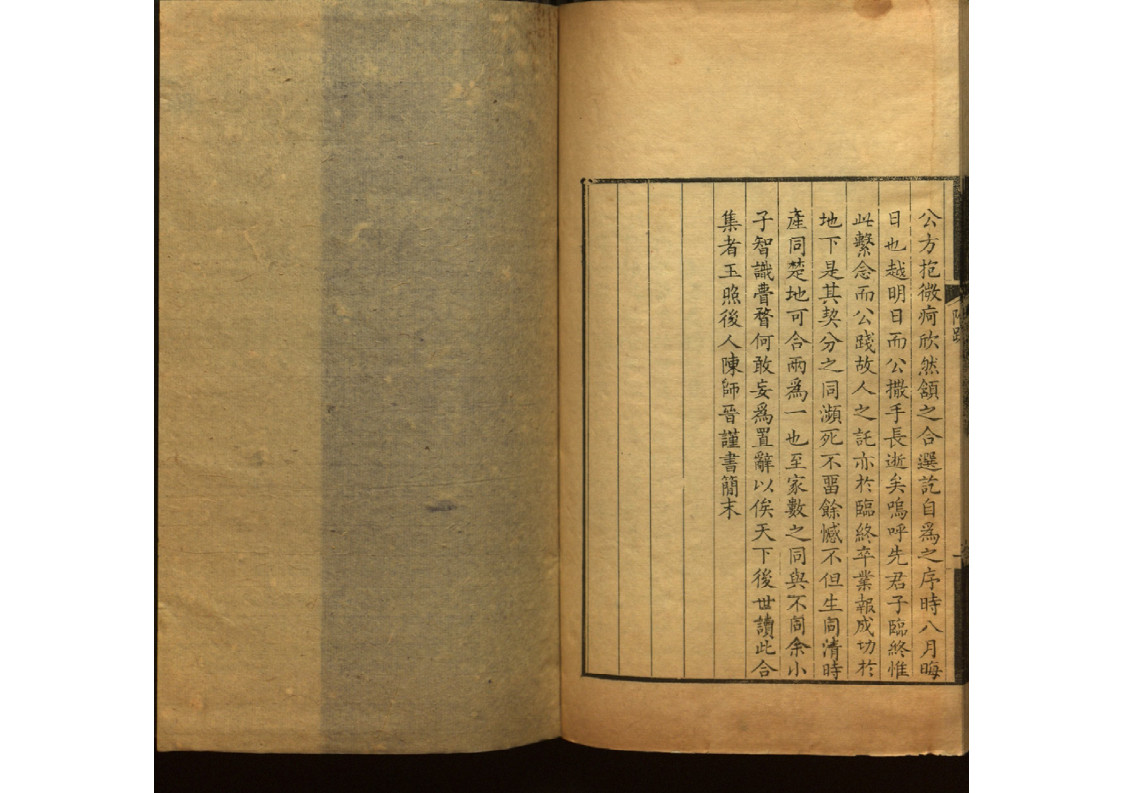 公方抱微疴欣然頷之合選訖自爲之序時八月晦
日也越明日而公撒手長逝矣嗚呼先君子臨終惟
此繫念而公踐故人之託亦於臨終卒業報成功於
地下是其契分之同瀕死不畱餘憾不但生同清時
產同楚地可合兩爲一也至家數之同與不同余小
子智識瞢瞀何敢妄爲置辭以俟天下後世讀此合
集者玉照後人陳師晉謹書簡末